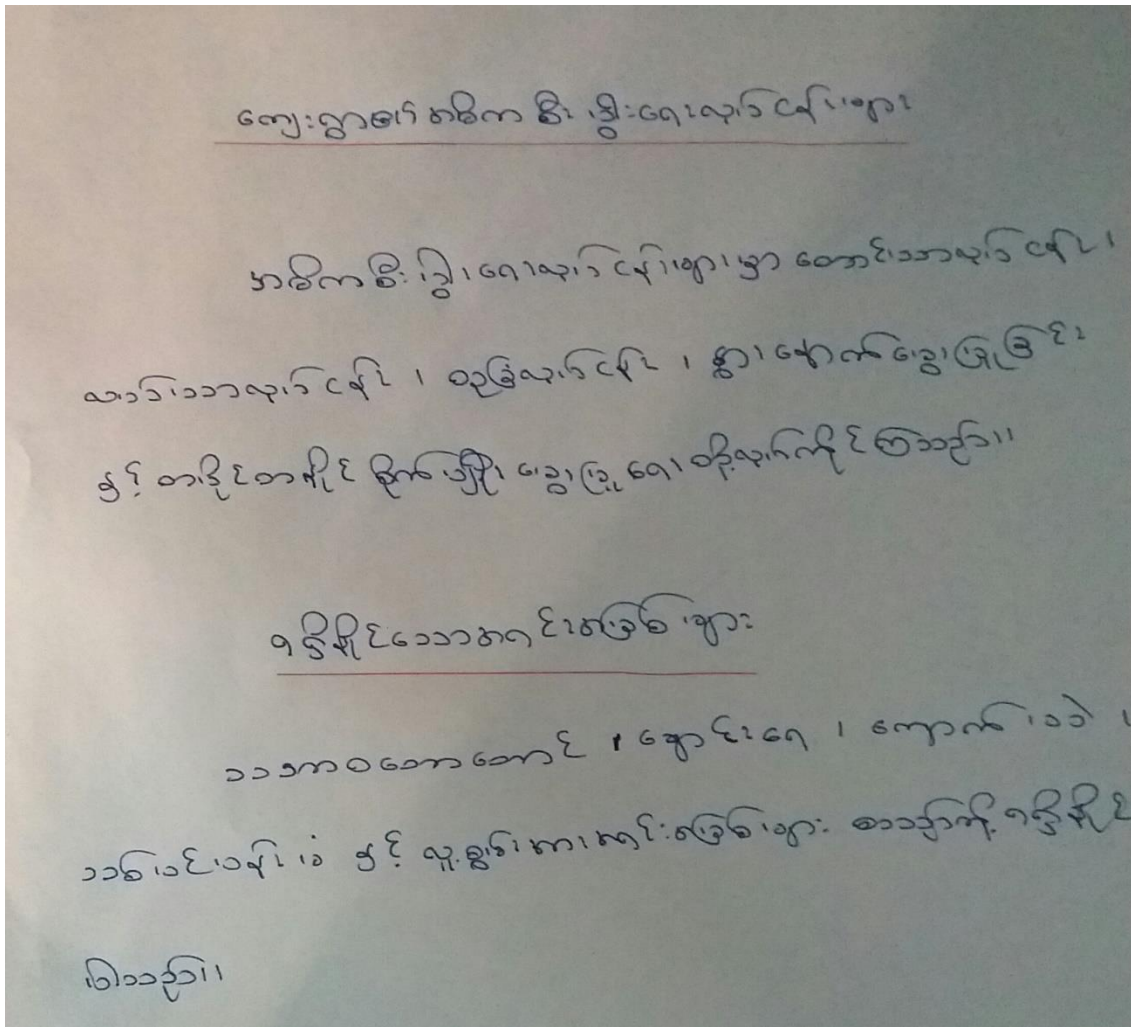 ကျေးရွာ၏ အဓိက စီးပွားရေးလုပ်ငန်းများ
အဓိက စီးပွားရေးလုပ်ငန်းများမှာ တောင်သူလုပ်ငန်း၊
လယ်ယာလုပ်ငန်း၊ ဥယျာဉ်ခြံလုပ်ငန်း၊ နွား၊ နောက်မွေးမြူခြင်း
နှင့် တပိုင်တနိုင် စိုက်ပျိုး မွေးမြူရေး တို့လုပ်ကိုင်ကြသည်။
ရရှိနိုင်သောအရင်းအမြစ်များ
သဘာဝတောတောင်၊ ချောင်းရေ၊ ကျောက်၊ သဲ၊
သစ်ပင်ပန်းမံ နှင့် လူ့စွမ်းအားအရင်းအမြစ်များ စသည်တို့ ရရှိနိုင်
ပါသည်။